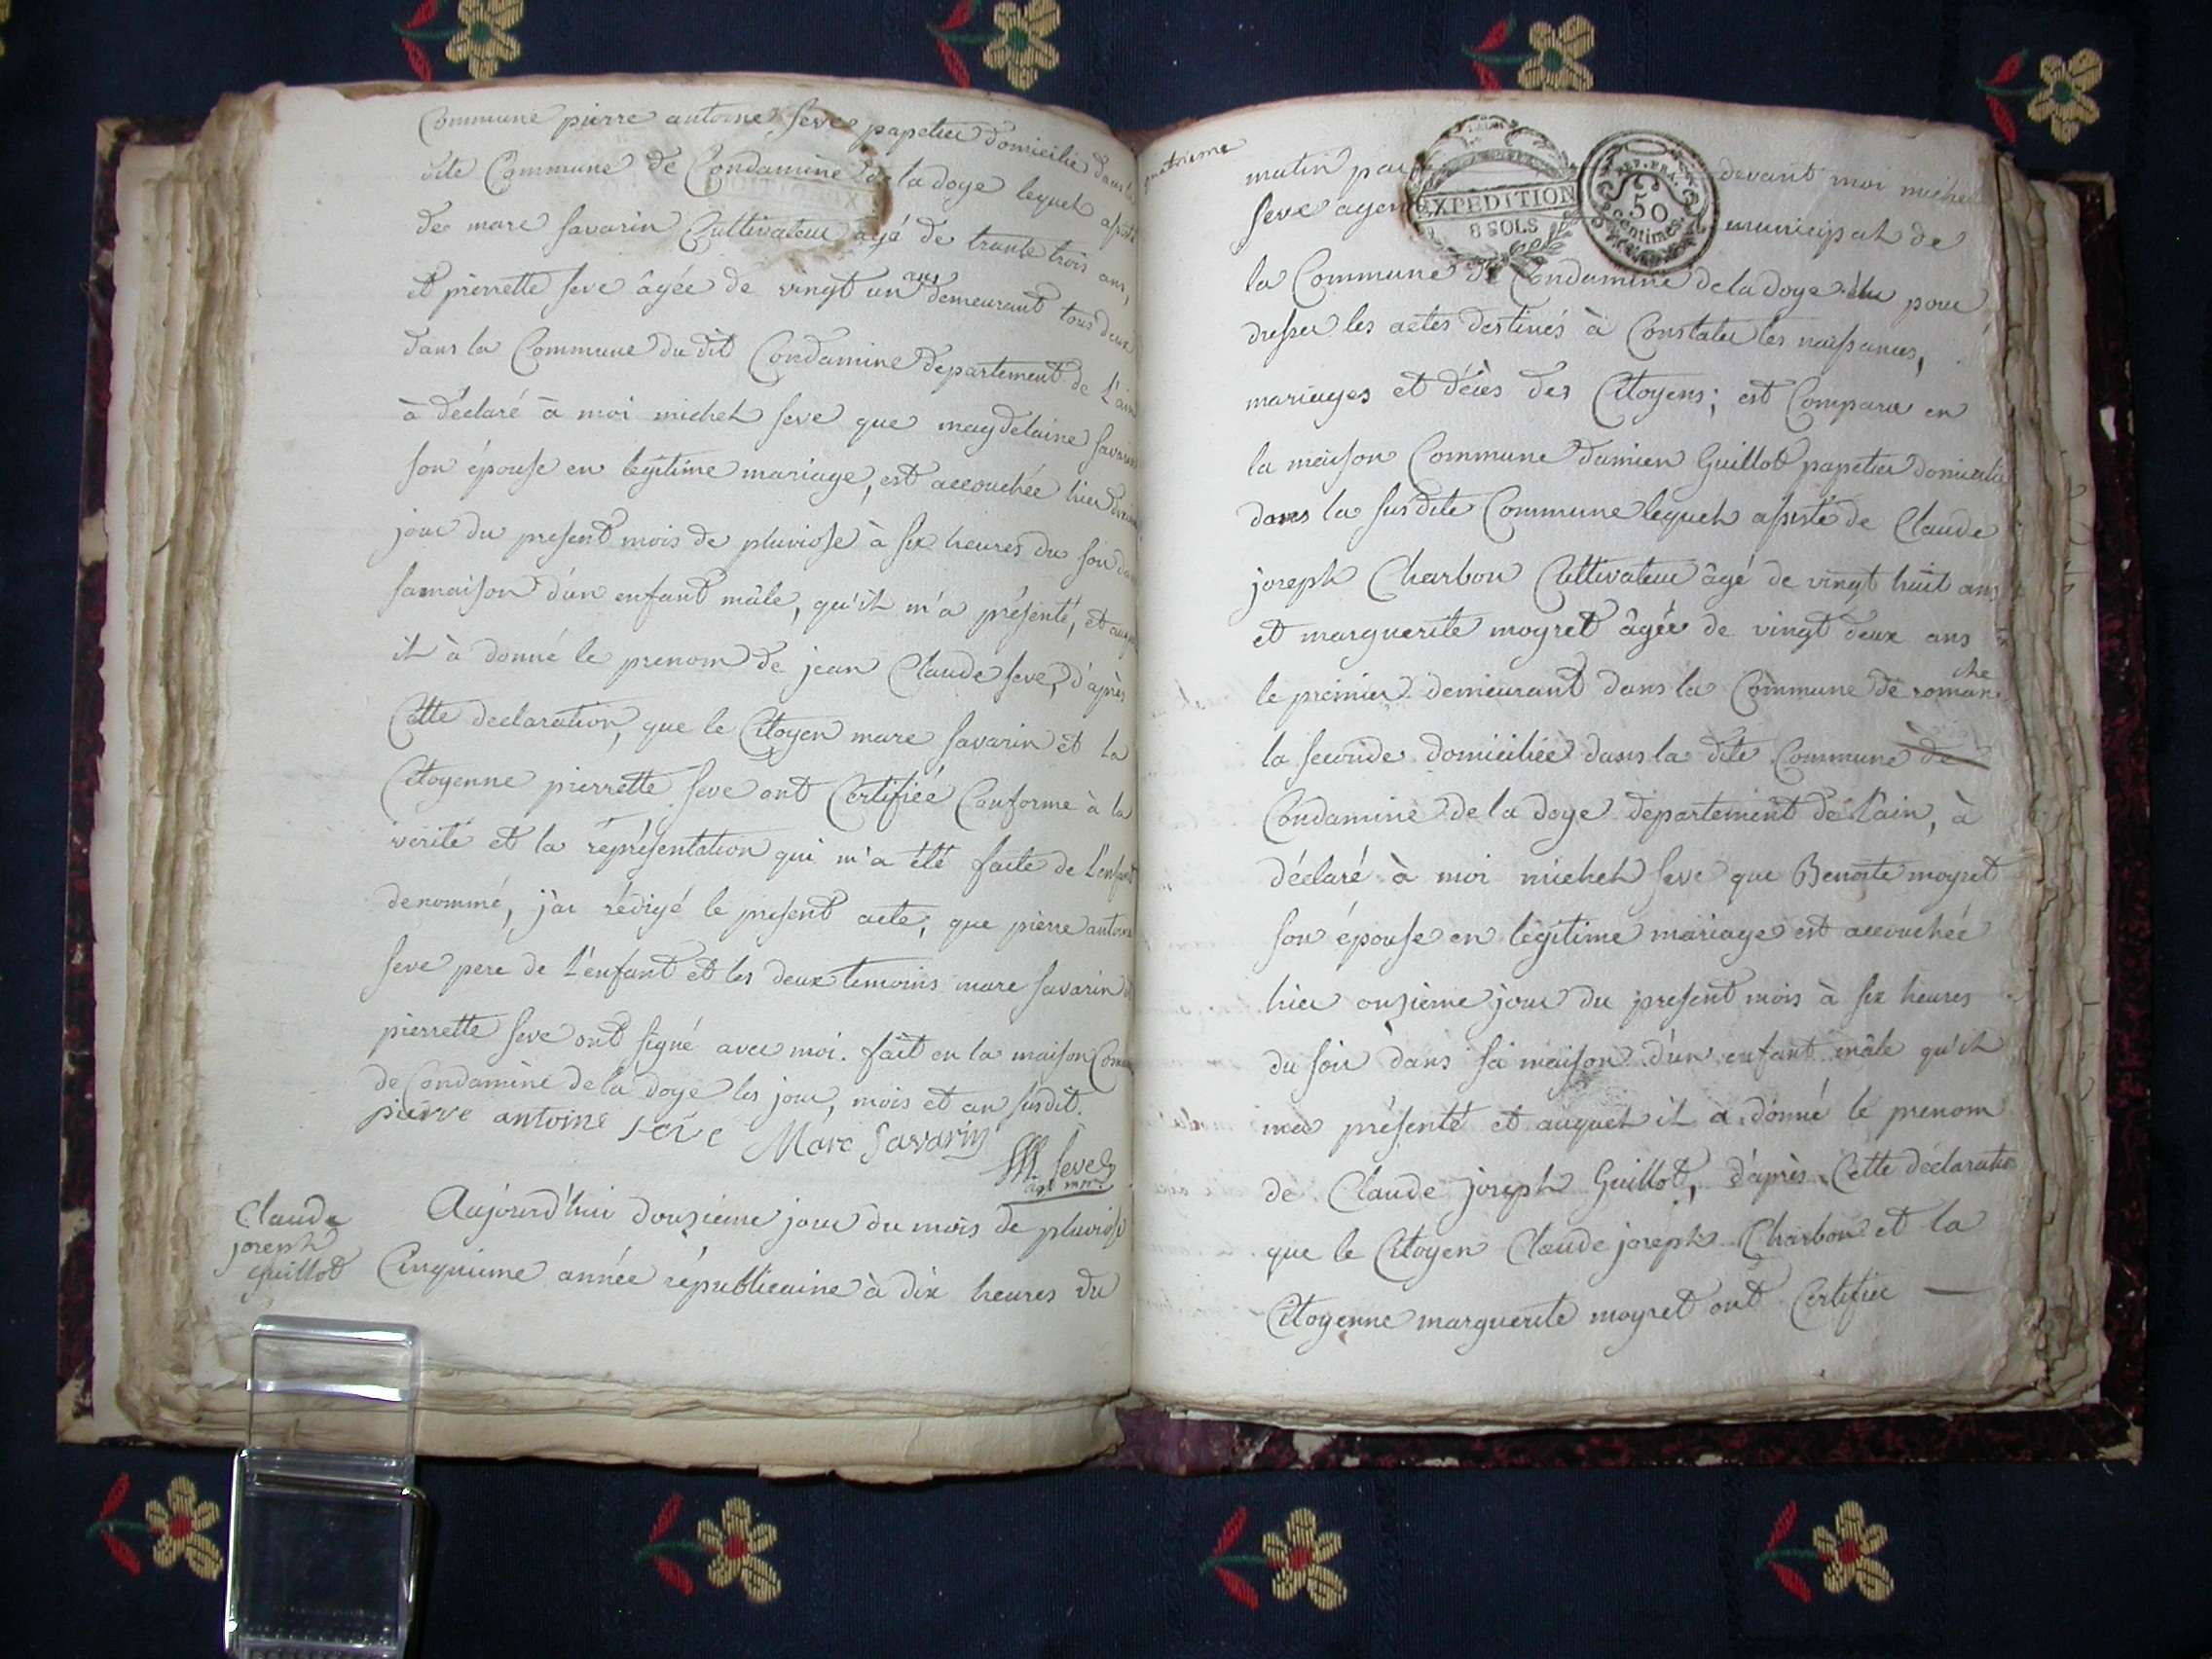 Commune pierre antoine seve papetier domicilié dans la
dite Commune de Condamine de la doye lequel assisté
de marc savarin Cultivateur âgé de trante trois ans,
et pierrette seve âgée de vingt un ans demeurant tous deux
dans la Commune du dit Condamine departement de L'ain
à déclaré à moi michel seve que magdelaine savarin
son épouse en legitime mariage, est accouchée hier
jour du present mois de pluviose à six heures du soir dans
sa maison d'un enfant mâle, qu'il m'a présenté, et auquel
il à donné le prenom de jean Claude seve, d'après
Cette declaration, que le Citoyen marc savarin et la
Citoyenne pierrette seve ont Certifiée Conforme à la
vérité et la réprésentation qui m'a été faite de L'enfant
denommé, j'ai rédigé le present acte, que pierre antoine
seve pere de L'enfant et les deux temoins marc savarin et
pierrette seve ont signé avec moi. fait en la maison Commune
de Condamine de la doye les jour, mois et an susdit.
pierre antoine seve Marc Savarin
M Seve
agt mpal
Claude
joseph
guillot
Aujourd'hui douzieme jour du mois de pluviose
Cinquieme année républicaine à dix heures du
quatrieme
matin par devant moi michel
EXPEDITION
8 SOLS
REP. FRA.
50
centimes
seve agent municipal de
la Commune de Condamine de la doye élu pour
dresser les actes destinés à Constater les naissances,
mariages et décès des Citoyens; est Comparu en
la maison Commune damien Guillot papetier domicilié
dans la susdite Commune lequel assisté de Claude
joseph Charbon Cultivateur âgé de vingt huit ans
et marguerite moyret âgée de vingt deux ans
le premier demeurant dans la Commune de romanche
la seconde domiciliée dans la dite Commune de
Condamine de la doye departement de L'ain, à
déclaré à moi michel seve que Benoite moyret
son épouse en légitime mariage est accouchée
hier onzième jour du present mois à six heures
du soir dans sa maison d'un enfant mâle qu'il
m'a présenté et auquel il a donné le prenom
de Claude joseph Guillot, d'après Cette déclaration
que le Citoyen Claude joseph Charbon et la
Citoyenne marguerite moyret ont Certifiée —